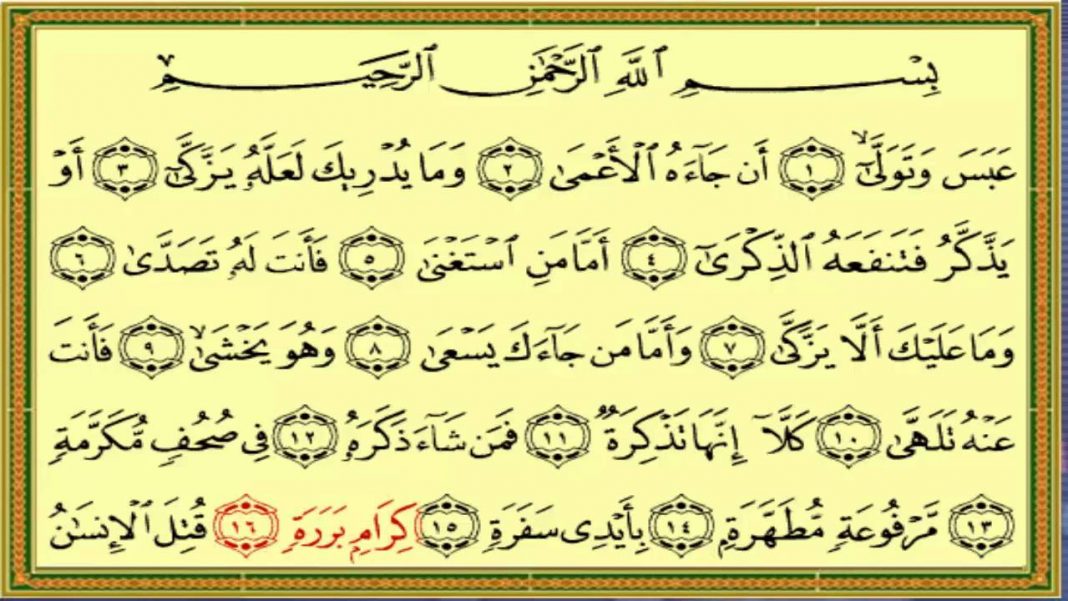 بِسْمِ ٱللَّهِ ٱلرَّحْمَٰنِ ٱلرَّحِيمِ
عَبَسَ وَتَوَلَّىٰٓ ١ أَن جَآءَهُ ٱلْأَعْمَىٰ ٢ وَمَا يُدْرِيكَ لَعَلَّهُۥ يَزَّكَّىٰٓ ٣ أَوْ
يَذَّكَّرُ فَتَنفَعَهُ ٱلذِّكْرَىٰٓ ٤ أَمَّا مَنِ ٱسْتَغْنَىٰ ٥ فَأَنتَ لَهُۥ تَصَدَّىٰ ٦
وَمَا عَلَيْكَ أَلَّا يَزَّكَّىٰ ٧ وَأَمَّا مَن جَآءَكَ يَسْعَىٰ ٨ وَهُوَ يَخْشَىٰ ٩ فَأَنتَ
عَنْهُ تَلَهَّىٰ ١٠ كَلَّآ إِنَّهَا تَذْكِرَةٌ ١١ فَمَن شَآءَ ذَكَرَهُۥ ١٢ فِى صُحُفٍ مُّكَرَّمَةٍ
١٣ مَّرْفُوعَةٍ مُّطَهَّرَةٍۭ ١٤ بِأَيْدِى سَفَرَةٍ ١٥ كِرَامٍۭ بَرَرَةٍ ١٦ قُتِلَ ٱلْإِنسَٰنُ